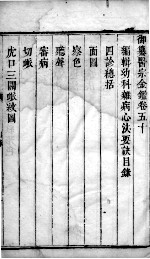 御纂醫宗金鑑卷五十
編輯幼科雜病心法要訣目錄
四診總括
面圖
察色
聽聲
審病
切脉
虎口三關脉紋圖